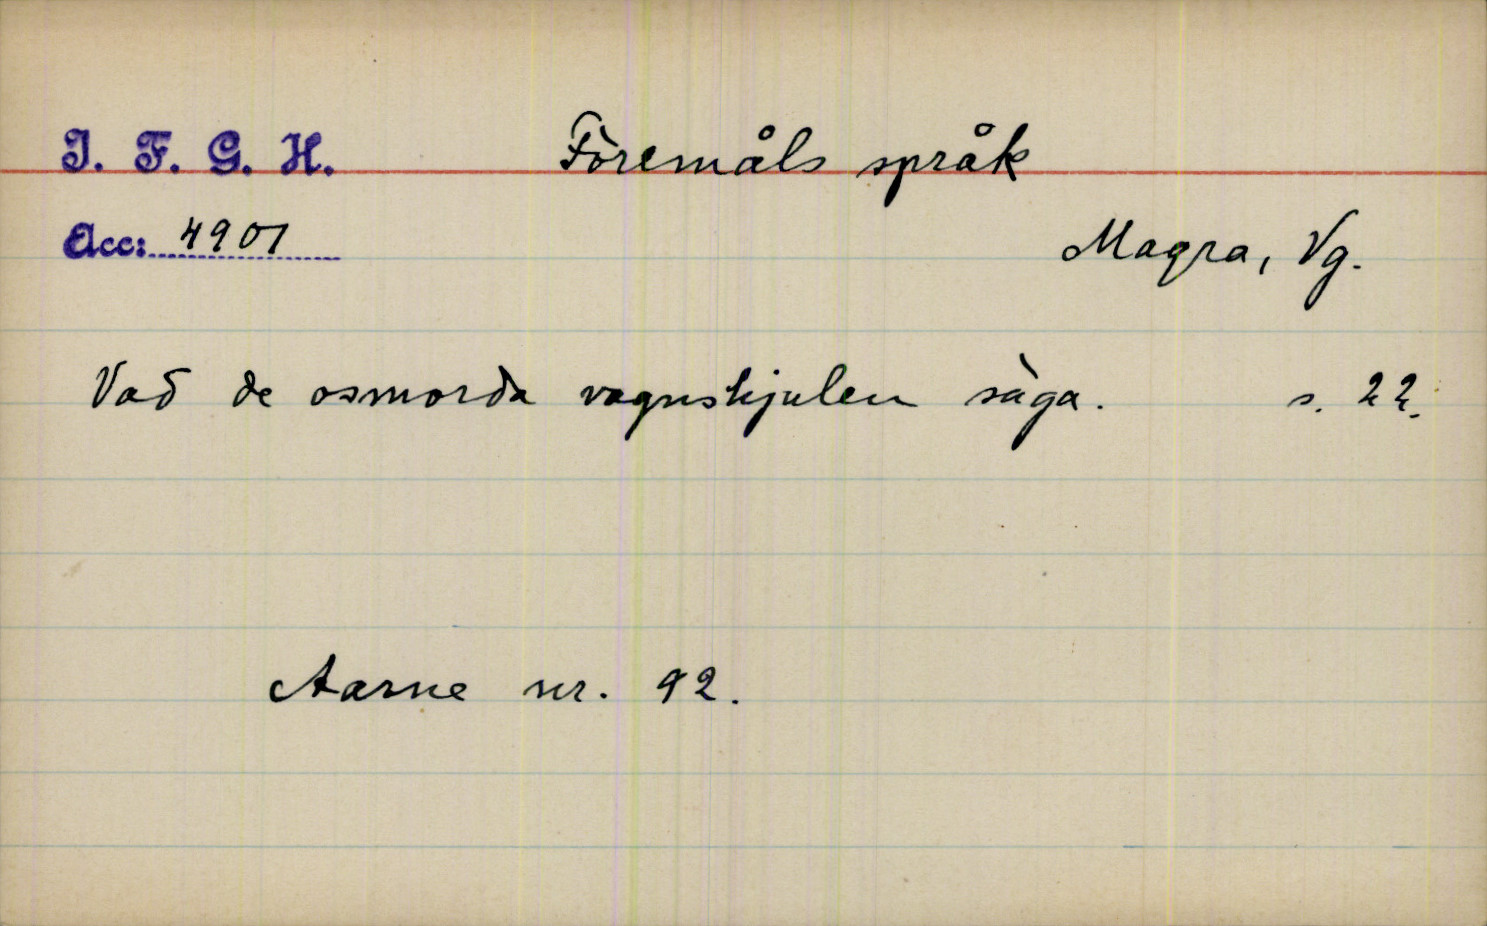 I. F. G. H. Föremåls språk
Acc: 4901
Magra, Vg.
Vad de osmorda vagnshjulen säga. s. 22.
Aarne nr. 92.